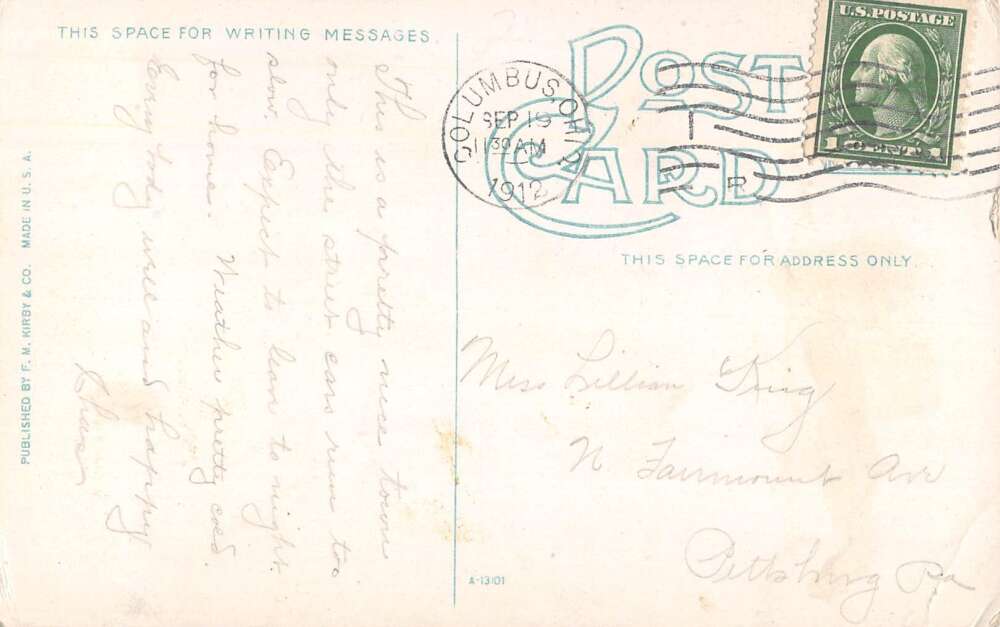 THIS SPACE FOR WRITING MESSAGES
This is a pretty nice town
only the street cars run too
slow. Expect to leave to night
for home. Weather pretty cold.
Every body well and happy
POST CARD
COLUMBUS, OHIO
SEP 19
11 30 AM
1912
U.S. POSTAGE
1 CENT 1
THIS SPACE FOR ADDRESS ONLY.
Miss Lillian King
N Fairmount Ave
Pittsburg Pa
A-13101
PUBLISHED BY F. M. KIRBY & CO. MADE IN U. S. A.